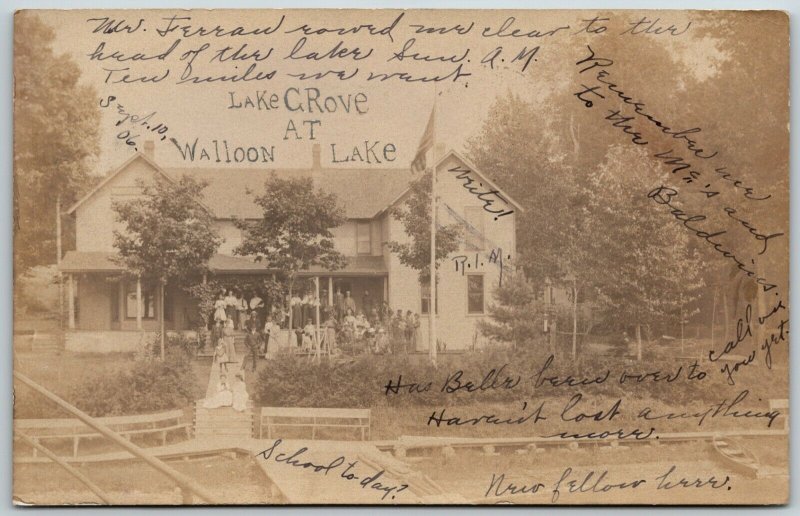 Mr. Ferran rowed me clear to the
head of the lake Sun. A.M.
Ten miles we went.
Sept. 10,
06.
LAKE GROVE
AT
WALLOON LAKE
Write!
R.I.M.
Remember me
to the Mc's and
Baldwins.
Has Belle been over to call on
you yet.
Haven't lost anything
more.
School to-day?
New fellow here.